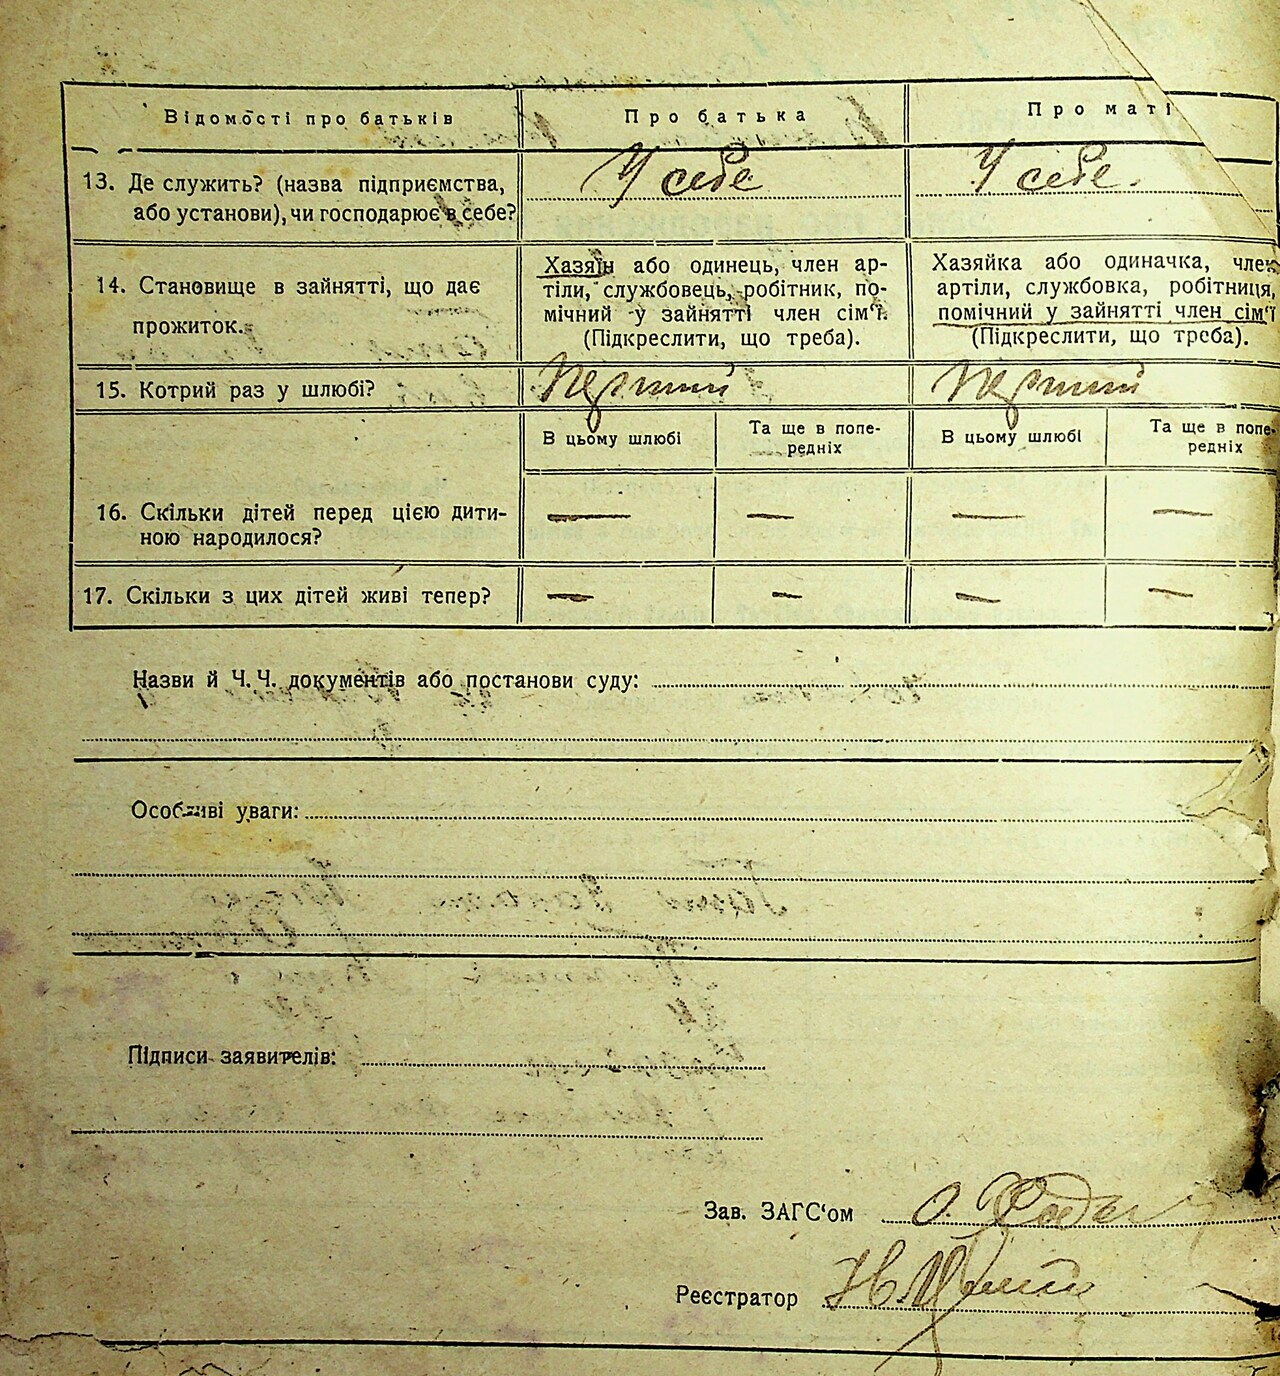 Відомості про батьків
Про батька
Про маті
13. Де служить? (назва підприємства,
або установи), чи господарює в себе?
У себе
У себе.
14. Становище в зайнятті, що дає
прожиток.
Хазяїн або одинець, член ар-
тіли, службовець, робітник, по-
мічний у зайнятті член сім'ї.
(Підкреслити, що треба).
Хазяйка або одиначка, член
артіли, службовка, робітниця,
помічний у зайнятті член сім'ї
(Підкреслити, що треба).
15. Котрий раз у шлюбі?
Перший
Перший
В цьому шлюбі
Та ще в попе-
редніх
В цьому шлюбі
Та ще в попе-
редніх
16. Скільки дітей перед цією дити-
ною народилося?
—
—
—
—
17. Скільки з цих дітей живі тепер?
—
—
—
—
Назви й Ч.Ч. документів або постанови суду:
Особливі уваги:
Підписи заявителів:
Зав. ЗАГС‘ом
Реєстратор